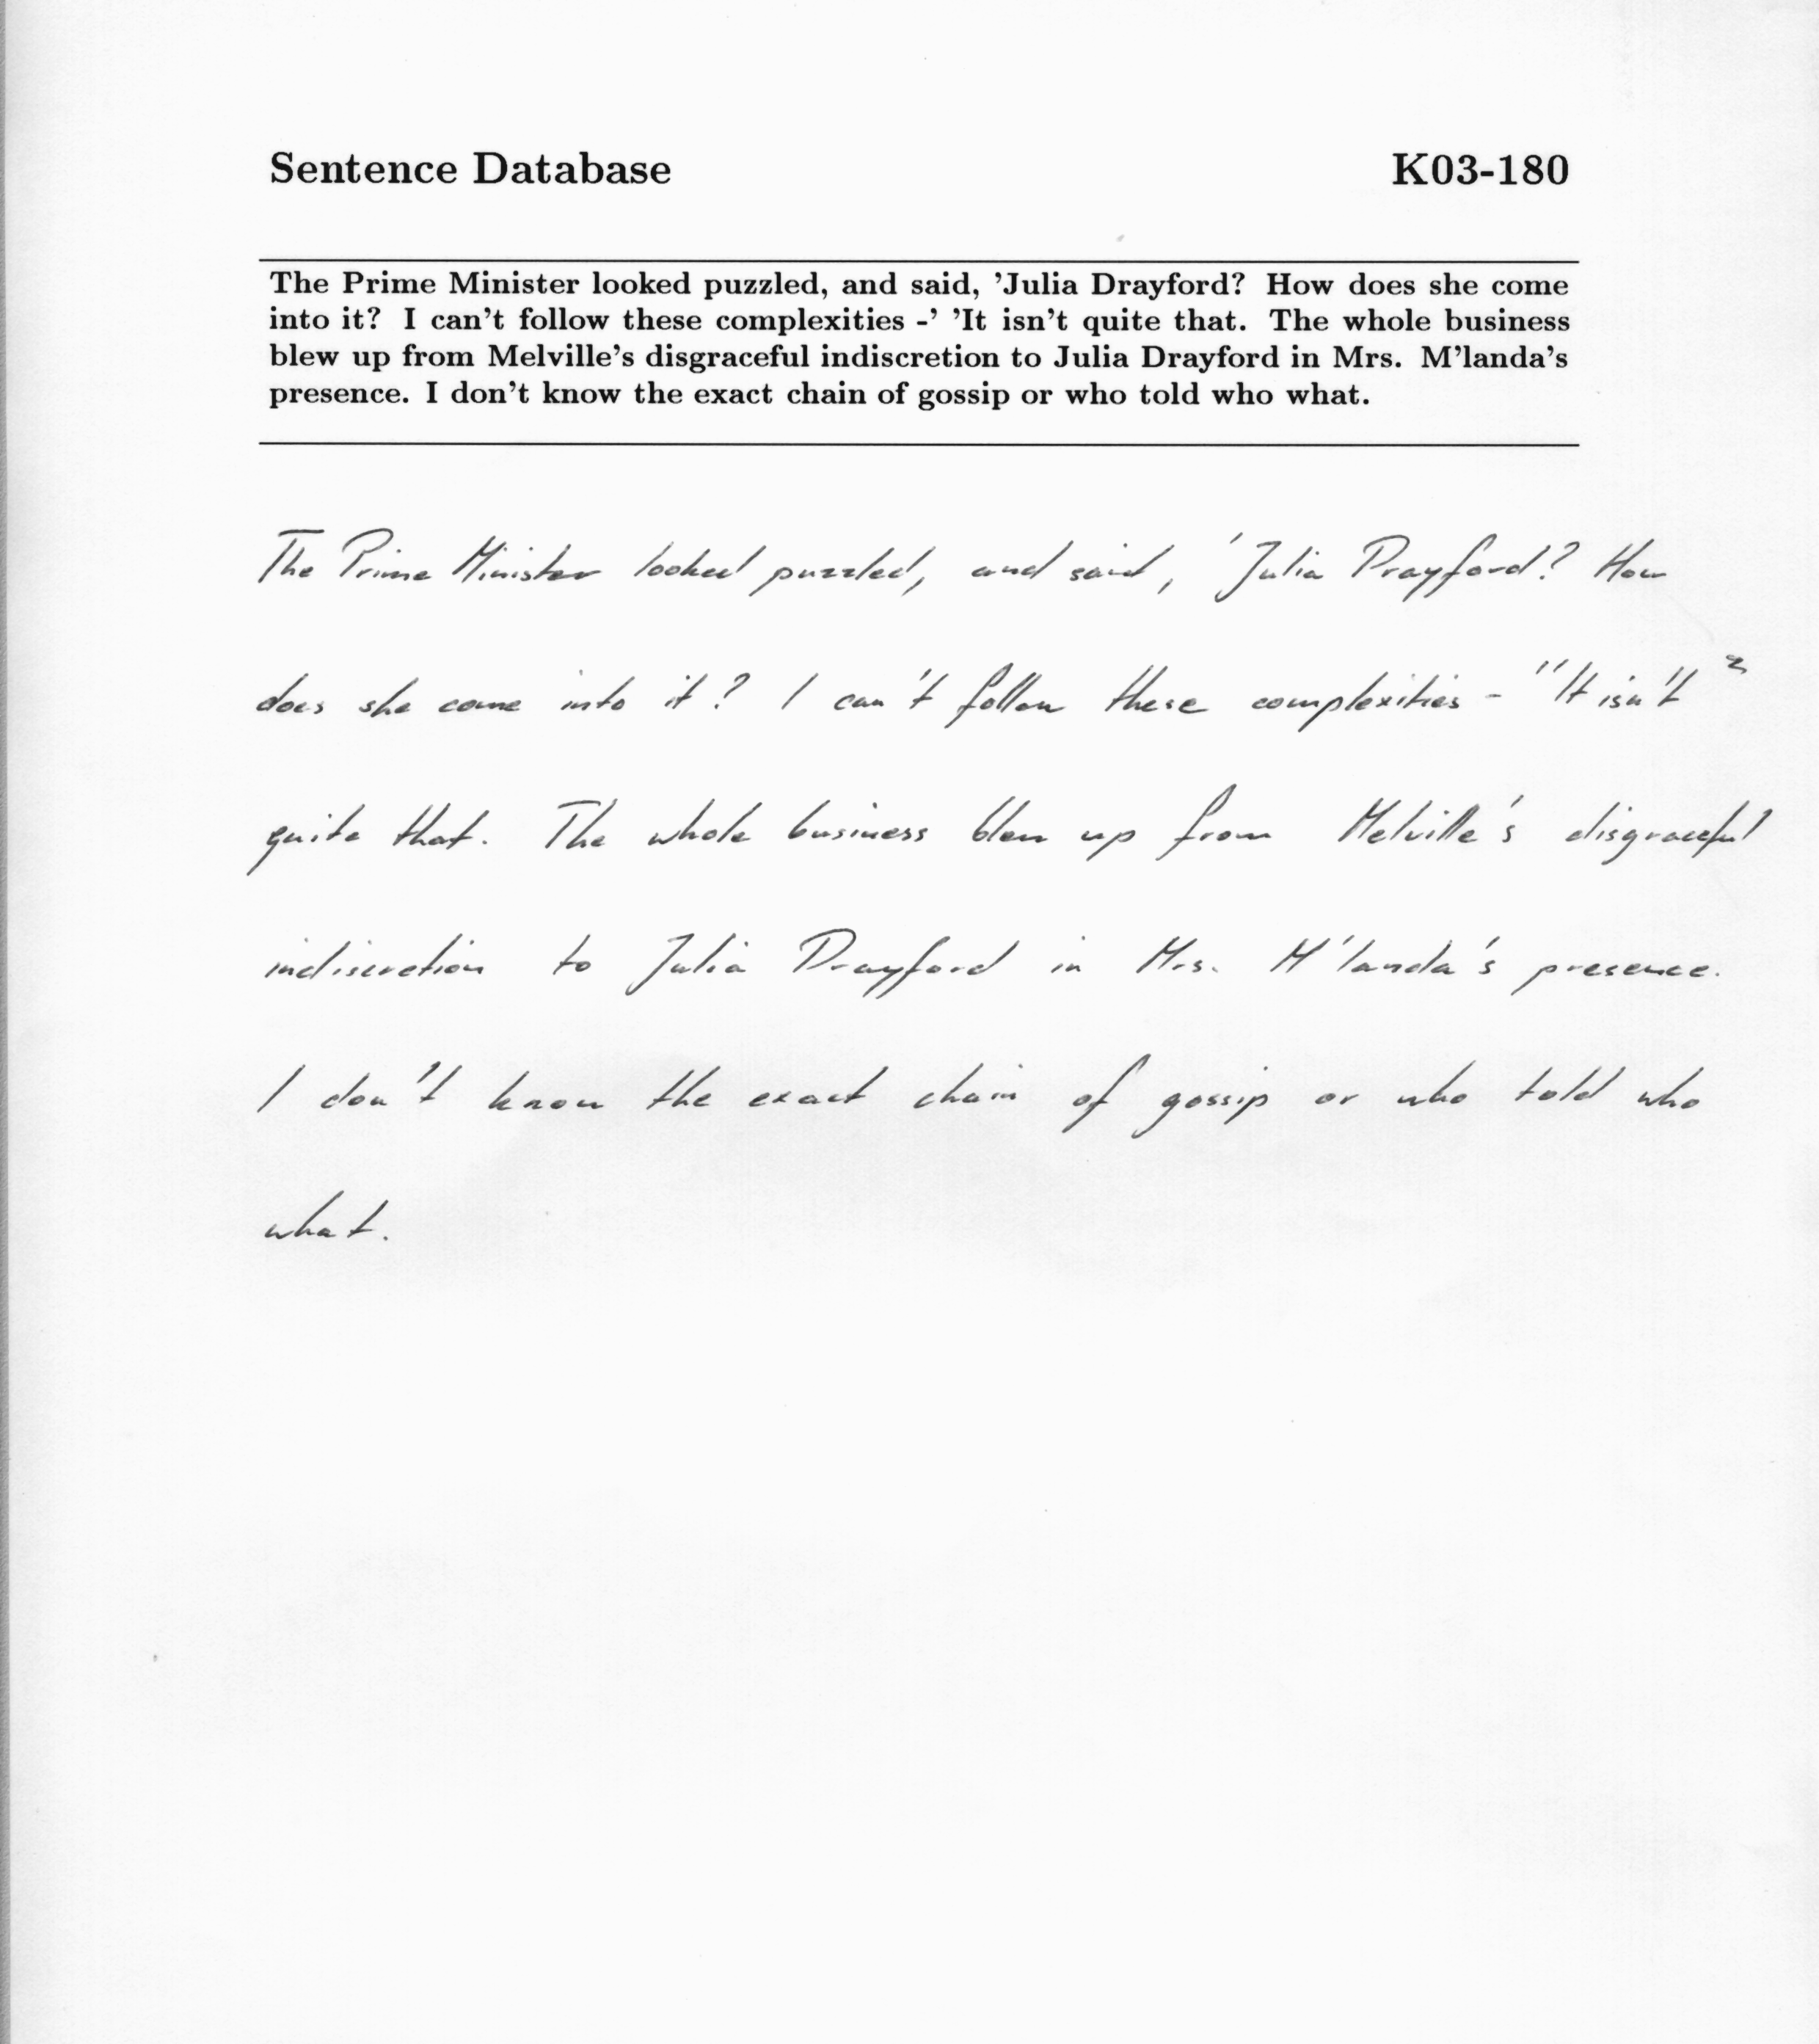 Sentence Database K03-180
The Prime Minister looked puzzled, and said, 'Julia Drayford? How does she come
into it? I can't follow these complexities -' 'It isn't quite that. The whole business
blew up from Melville's disgraceful indiscretion to Julia Drayford in Mrs. M'landa's
presence. I don't know the exact chain of gossip or who told who what.
The Prime Minister looked puzzled, and said, 'Julia Drayford? How
does she come into it? I can't follow these complexities - ''It isn't
quite that. The whole business blew up from Melville's disgraceful
indiscretion to Julia Drayford in Mrs. M'landa's presence.
I don't know the exact chain of gossip or who told who
what.